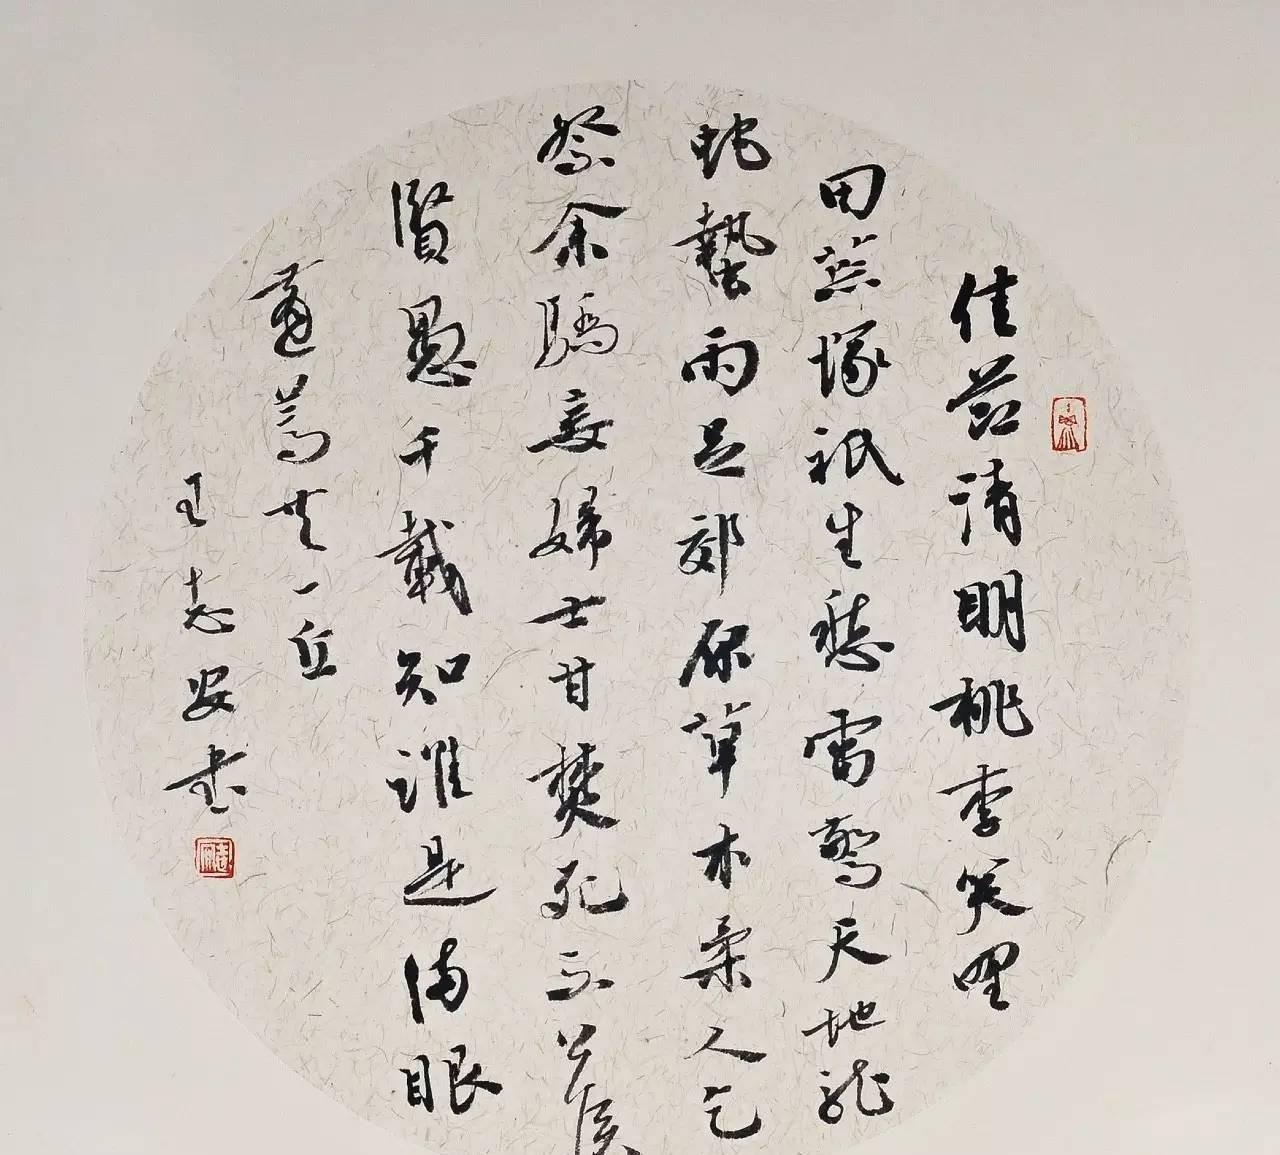 佳節清明桃李笑野
田荒塚祇生愁雷驚天地龍
蛇蟄雨足郊原草木柔人乞
祭余驕妾婦士甘焚死不公侯
賢愚千載知誰是滿眼
蓬蒿共一丘
王志安书